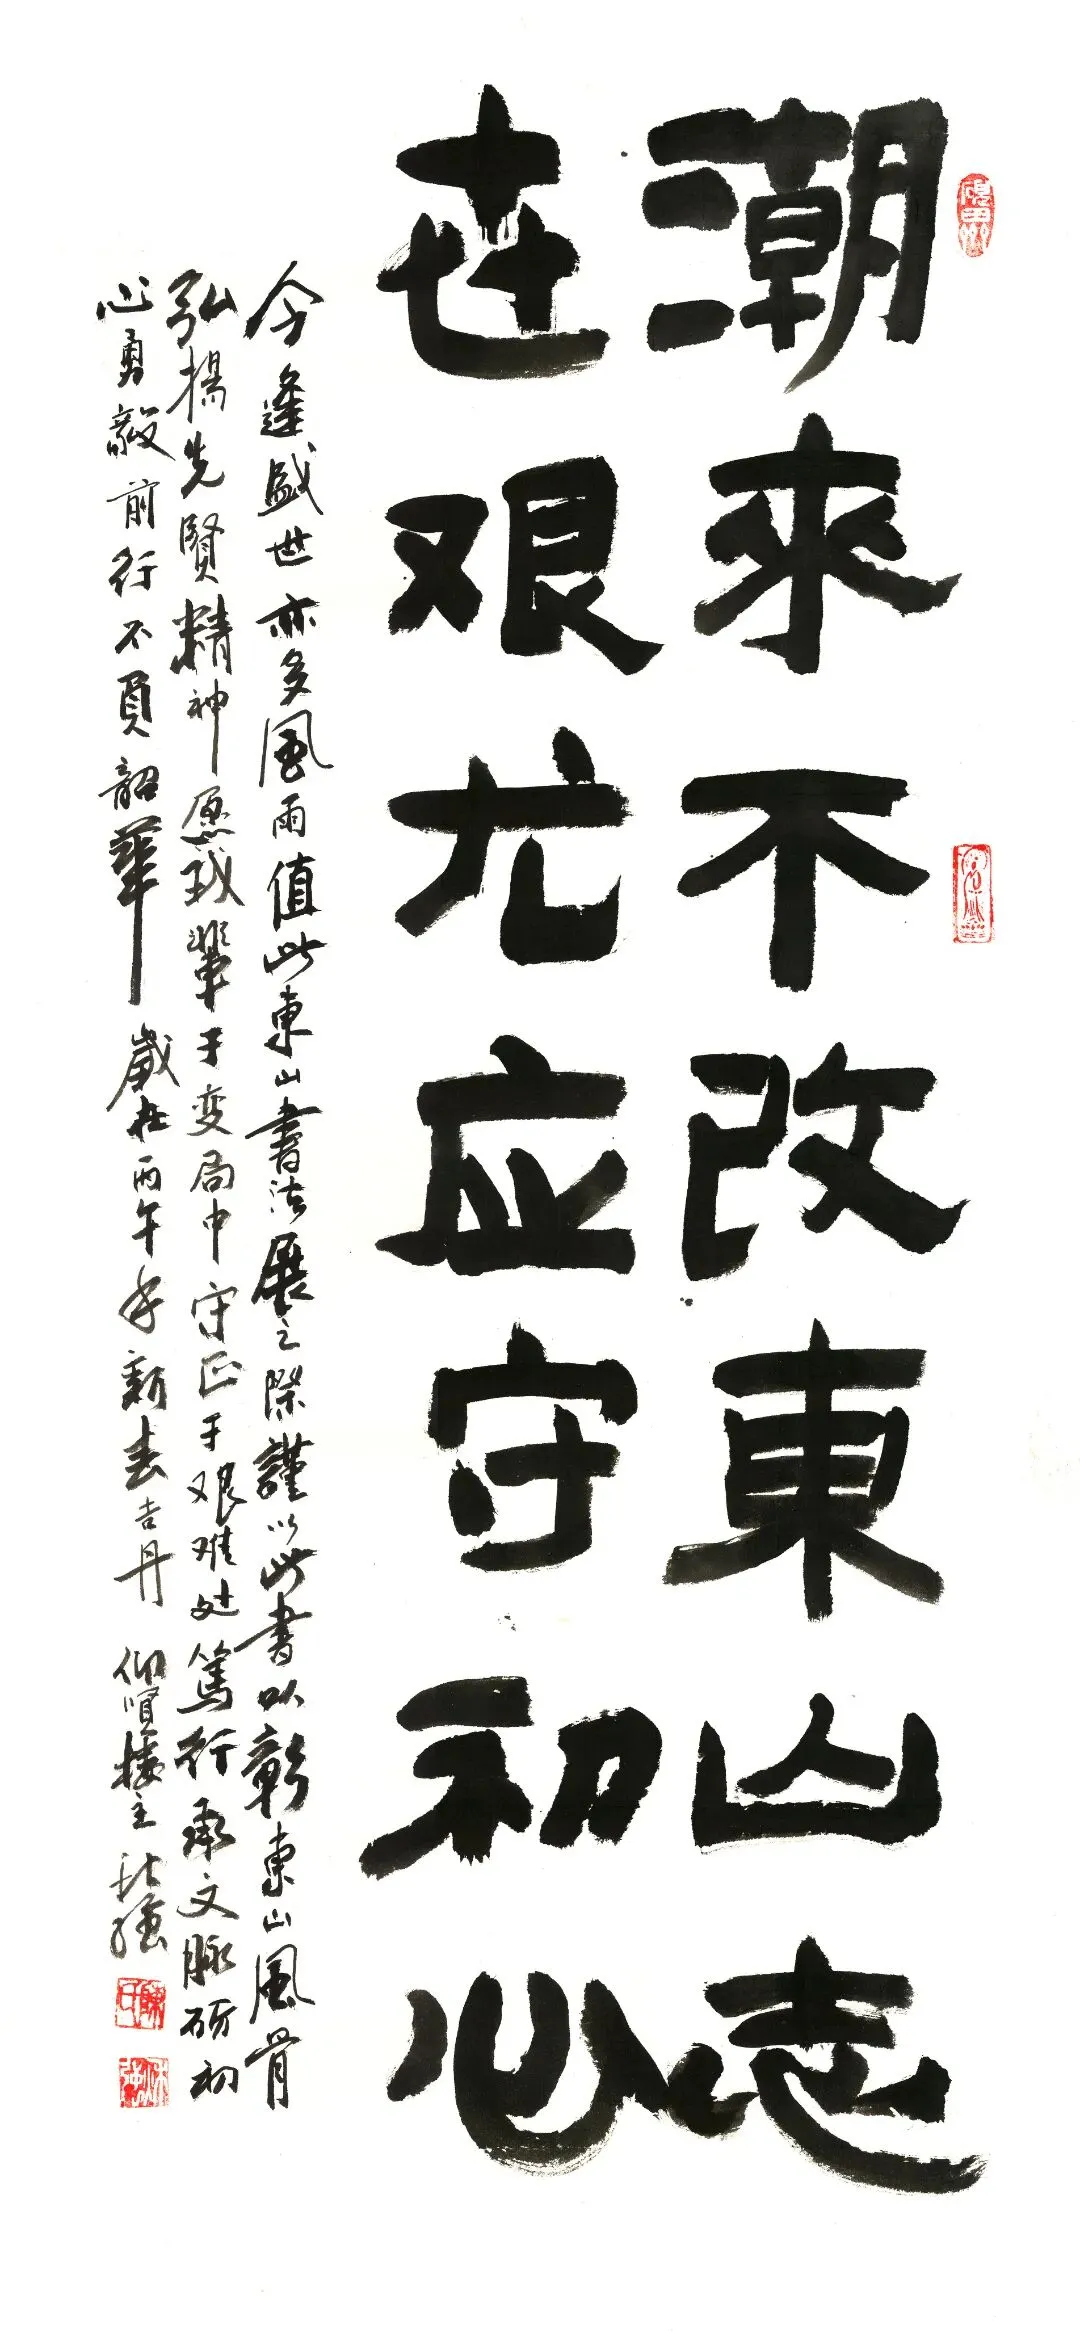 潮來不改東山志
世艰尤应守初心
今逢盛世亦多風雨值此東山書法展之際謹以此書以彰東山風骨
弘揚先賢精神愿我輩于变局中守正于艰难处篤行承文脉砺初
心勇毅前行不負韶華 歲在丙午年新春吉月 仰賢楼主 强